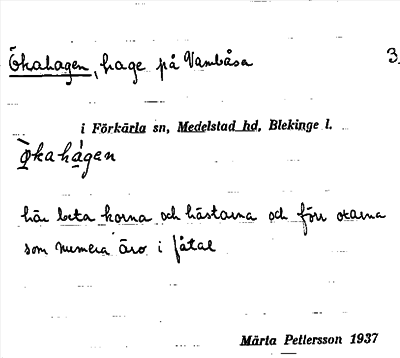 Ökahagen, hage på Vambåsa 3.
i Förkärla sn, Medelstad hd, Blekinge l.
Ò̱kahá̱gen
här beta korna och hästarna och förr oxarna
som numera äro i fåtal
Märta Pettersson 1937